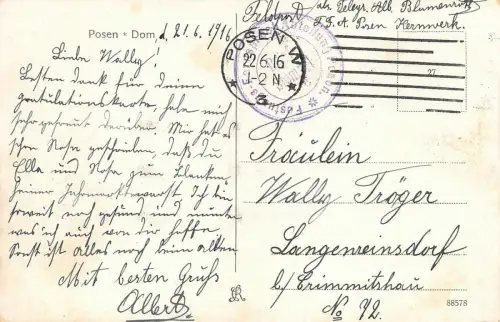 Posen • Dom, d. 21.6.1916
Liebe Wally!
Besten Dank für Deine
Gratulationskarte, habe mich
sehr gefreut darüber. Mir hat es
schon Rosa geschrieben, daß du
Ella und Rosa zum
warst. Ich bin
soweit noch gesund und munter
was ich auch von dir hoffe.
Sonst ist alles noch beim alten
Mit besten Gruß
Albert.
Feldpost
Abs. Telegr. Alb. Blumenröt
F. F. A. Posen Kernwerk.
POSEN W
22.6.16
1-2 N
* 3 *
27
Fräulein
Wally Tröger
Langenreinsdorf
b/ Crimmitzhau
No 72.
88578